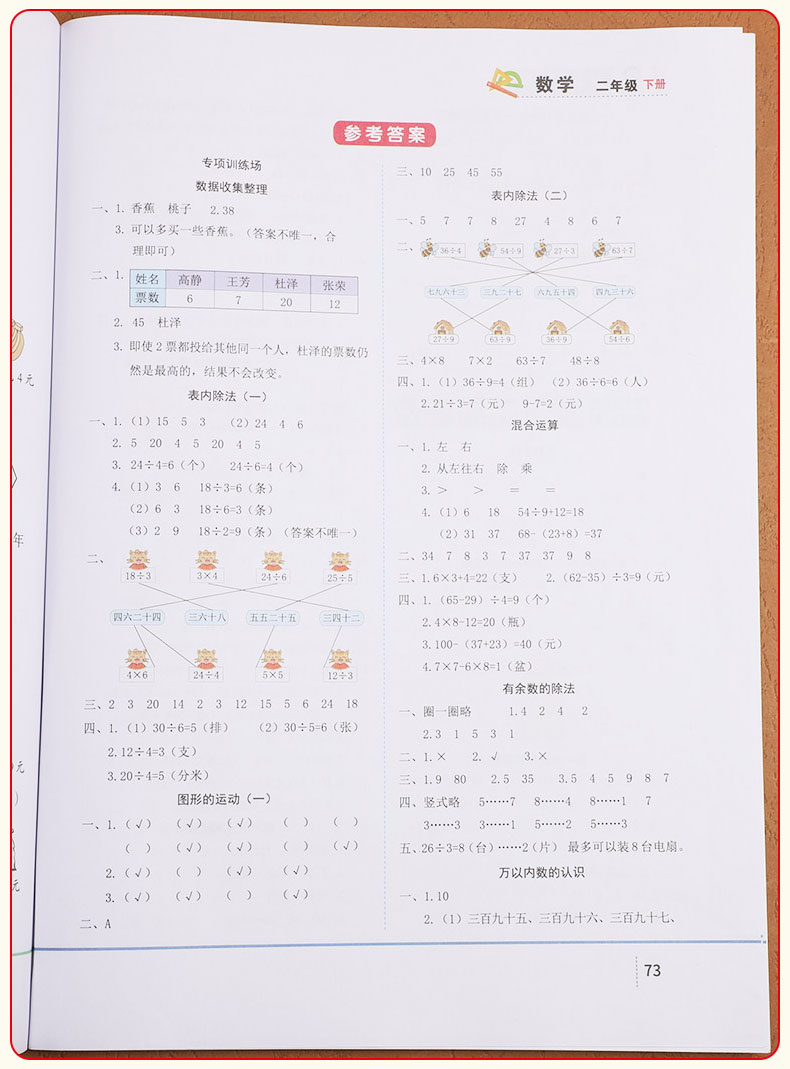 数学 二年级 下册
参考答案
专项训练场
数据收集整理
一、1. 香蕉 桃子 2.38
3. 可以多买一些香蕉。（答案不唯一，合
理即可）
二、1. 姓名 高静 王芳 杜泽 张荣
票数 6 7 20 12
2. 45 杜泽
3. 即使2票都投给其他同一个人，杜泽的票数仍
然是最高的，结果不会改变。
表内除法（一）
一、1.（1）15 5 3 （2）24 4 6
2. 5 20 4 5 20 4 5
3. 24÷4=6（个） 24÷6=4（个）
4.（1）3 6 18÷3=6（条）
（2）6 3 18÷6=3（条）
（3）2 9 18÷2=9（条）（答案不唯一）
二、
18÷3 3×4 24÷6 25÷5
四六二十四 三六十八 五五二十五 三四十二
4×6 24÷4 5×5 12÷3
三、2 3 20 14 2 3 12 15 5 6 24 18
四、1.（1）30÷6=5（排） （2）30÷5=6（张）
2.12÷4=3（支）
3.20÷4=5（分米）
图形的运动（一）
一、1.（√） （√） （√） （ ） （ ）
（ ） （√） （√） （ ） （√）
2.（√） （ ） （√） （√）
3.（√） （√） （ ） （√）
二、A
三、10 25 45 55
表内除法（二）
一、5 7 7 8 27 4 8 6 7
二、 36÷4 54÷9 27÷3 63÷7
七九六十三 三九二十七 六九五十四 四九三十六
27÷9 63÷9 36÷9 54÷6
三、4×8 7×2 63÷7 48÷8
四、1.（1）36÷9=4（组） （2）36÷6=6（人）
2.21÷3=7（元） 9-7=2（元）
混合运算
一、1. 左 右
2. 从左往右 除 乘
3. ＞ ＞ ＝ ＝
4.（1）6 18 54÷9+12=18
（2）31 37 68-（23+8）=37
二、34 7 8 3 7 37 37 9 8
三、1.6×3+4=22（支） 2.（62-35）÷3=9（元）
四、1.（65-29）÷4=9（个）
2.4×8-12=20（瓶）
3.100-（37+23）=40（元）
4.7×7-6×8=1（盆）
有余数的除法
一、圈一圈略 1.4 2 4 2
2.3 1 5 3 1
二、1.× 2.√ 3.×
三、1.9 80 2.5 35 3.5 4 5 9 8 7
四、竖式略 5……7 8……4 8……1 7
3……3 3……1 5……2 5……3
五、26÷3=8（台）……2（片） 最多可以装8台电扇。
万以内数的认识
一、1.10
2.（1）三百九十五、三百九十六、三百九十七、
73
4元
年
元
）
元